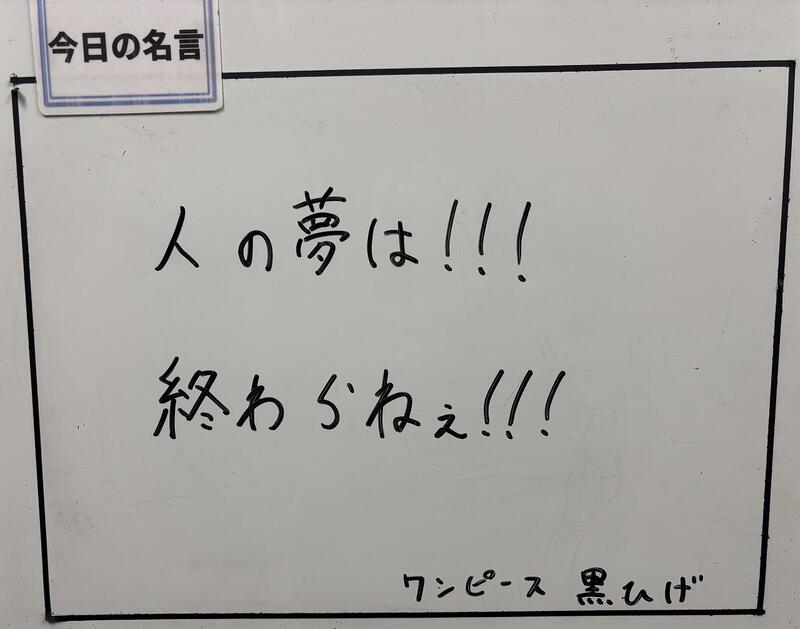 今日の名言
人の夢は!!!
終わらねぇ!!!
ワンピース 黒ひげ